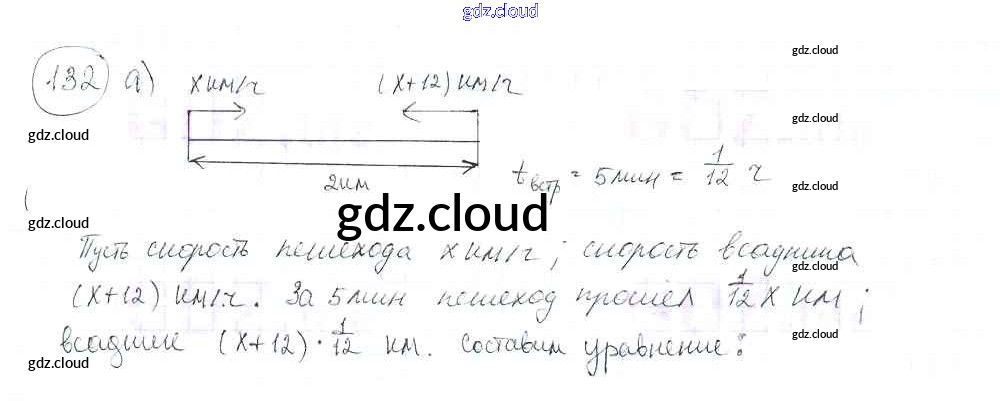 gdz.cloud
132 а) х км/ч (х+12) км/ч
2 км
tвстр = 5 мин = 1/12 ч
gdz.cloud
Пусть скорость пешехода х км/ч; скорость всадника
(х+12) км/ч. За 5 мин пешеход прошёл 1/12 х км;
всадник (х+12)·1/12 км. Составим уравнение:
gdz.cloud
gdz.cloud
gdz.cloud
gdz.cloud
gdz.cloud
gdz.cloud
gdz.cloud
gdz.cloud